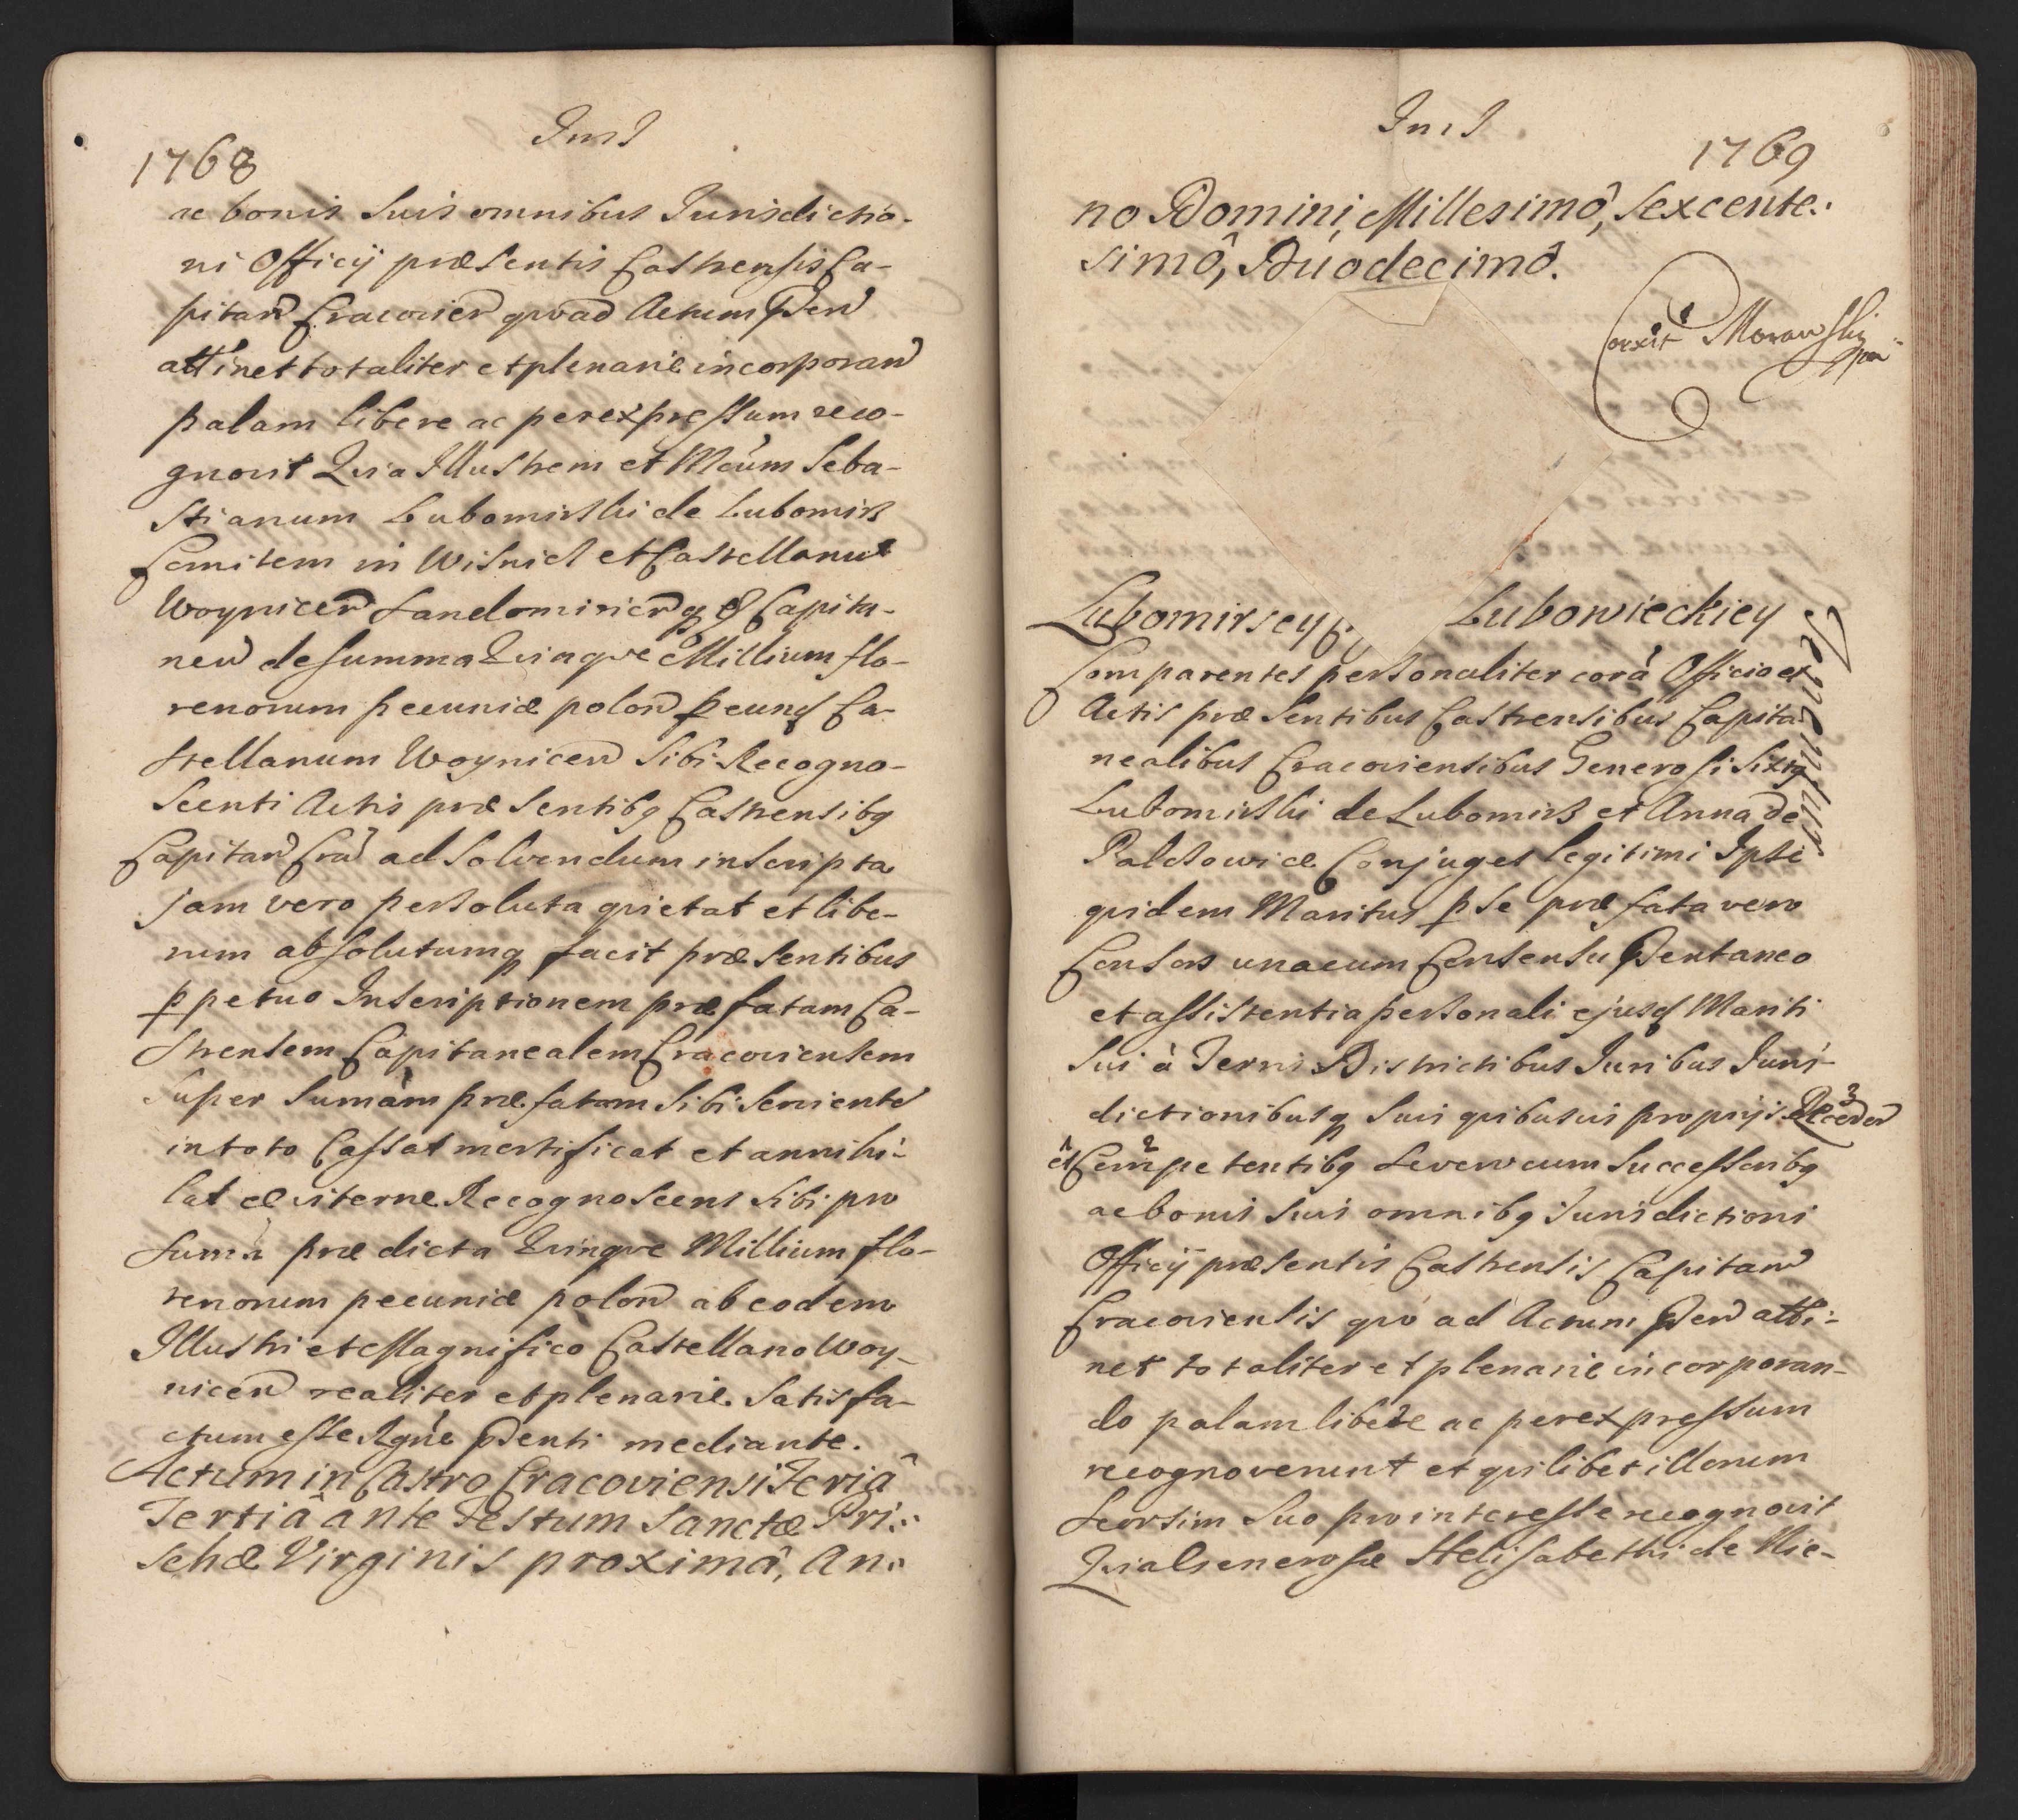 1768
ac bonis Suis omnibus Jurisdictio-
ni Officij præsentis Castrensis Ca-
pitan Cracovien qvoad Actum
attinet totaliter et plenarie incorporan
palam libere ac per expressum reco-
gnovit Qvia Illustrem et Mcum Seba-
stianum Lubomirski de Lubomirz
Comitem in Wisnicz et Castellanum
Woynicen Sandomirien Capita-
neu de summa Qvinqve Millium flo-
renorum pecuniæ polon Ca-
stellanum Woynicen Sibi Recogno-
scenti Actis præsentibq Castrensibq
Capitan Cra ad solvendum inscripta
jam vero persoluta qvietat et libe-
rum absolutumq facit præsentibus
ppetuo Inscriptionem præfatam Ca-
strensem Capitanealem Cracoviensem
super sumam præfatam Sibi Serviente
in toto Cassat mortificat et annihi-
lat Recognoscens Sibi pro
suma prædicta Qvinqve Millium flo-
renorum pecuniæ polon ab eodem
Illustri et Magnifico Castellano Woy-
nicen realiter et plenarie Satisfa-
ctum esse mediante.
Actum in Castro Cracoviensi Feriâ
Tertiâ ante Festum Sanctæ Pri:
schæ Virginis proximâ, An:
1769
no Domini, Millesimô, Sexcente:
simô, Duodecimô.
Morawski
Lubomirscy Lubowieckiey
Comparentes personaliter corā Officio et
Actis præsentibus Castrensibus Capita
nealibus Cracoviensibus Generosi Sixtq
Lubomirski de Lubomirz et Anna de
Palczowice Conjuges legitimi Ipse
qvidem Maritus p se præfata vero
Consors unacum Consensu
et assistentia personali ejusd Mariti
Sui à Terris Districtibus Juribus Juri-
dictionibusq Suis qvibusvis proprijs 3
et Com2petentibq cum Successoribq
ac bonis Suis omnibq Jurisdictioni
Officij præsentis Castrensis Capitan
Cracoviensis qvo ad Actum atti-
net totaliter et plenarie incorporan-
do palam libere ac per expressum
recognoverunt et qvilibet illorum
Seorsim Suo pro interesse recognovit
Qvia Generosæ Helisabethi de Nie-